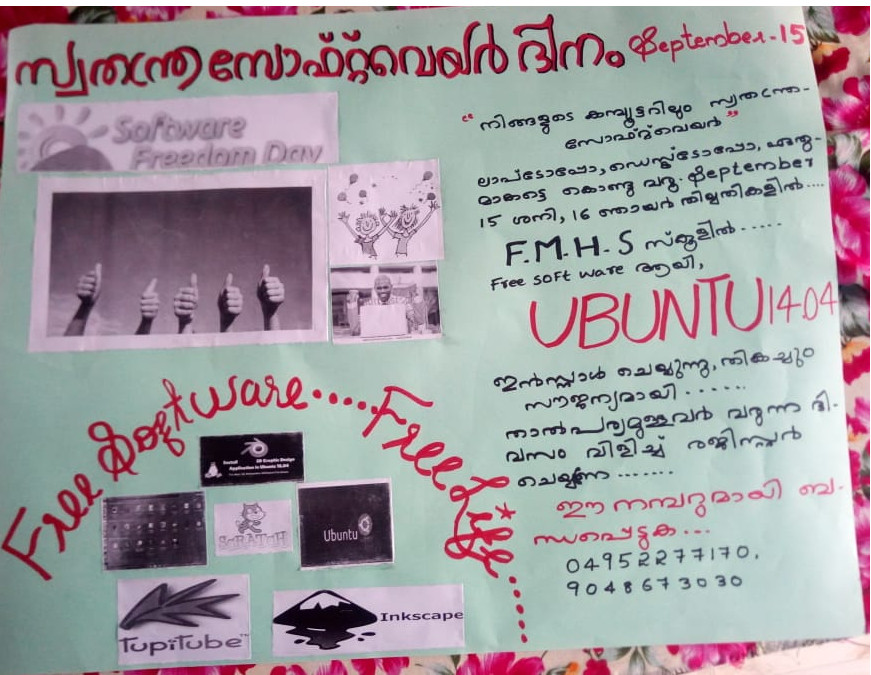 സ്വതന്ത്ര സോഫ്റ്റ്‌വെയർ ദിനം September-15
Software
Freedom Day
"നിങ്ങളുടെ കമ്പ്യൂട്ടറിലും സ്വതന്ത്ര-
സോഫ്റ്റ്‌വെയർ"
ലാപ്ടോപ്പോ, ഡെസ്ക്ടോപ്പോ, എന്തു-
മാകട്ടെ കൊണ്ടു വരൂ. September
15 ശനി, 16 ഞായർ തിയ്യതികളിൽ....
F.M.H.S സ്കൂളിൽ.....
Free soft ware ആയി,
UBUNTU 14.04
ഇൻസ്റ്റാൾ ചെയ്യുന്നു, തികച്ചും
സൗജന്യമായി.......
താൽപര്യമുള്ളവർ വരുന്ന ദി-
വസം വിളിച്ച് രജിസ്റ്റർ
ചെയ്യണേ.......
ഈ നമ്പറുമായി ബ-
ന്ധപ്പെടുക...
04952277170,
9048673030
Free Software.....Free Life.....
Install
3D Graphic Design
Application in Ubuntu
SCRATCH
Ubuntu
TupiTube™
Inkscape